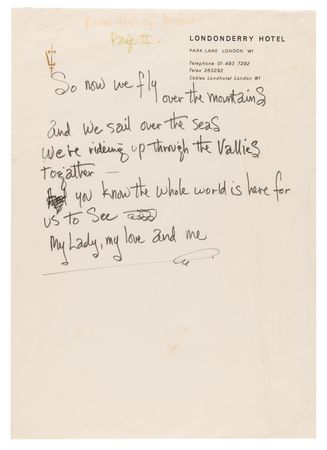 Room full of Mirrors
Page II
LONDONDERRY HOTEL
PARK LANE LONDON W1
Telephone 01-493 7292
Telex 263292
Cables Londhotel London W1
So now we fly
over the mountains
and we sail over the seas
we're rideing up through the Vallies
together —
you know the whole world is here for
us to See
My Lady, my love and me